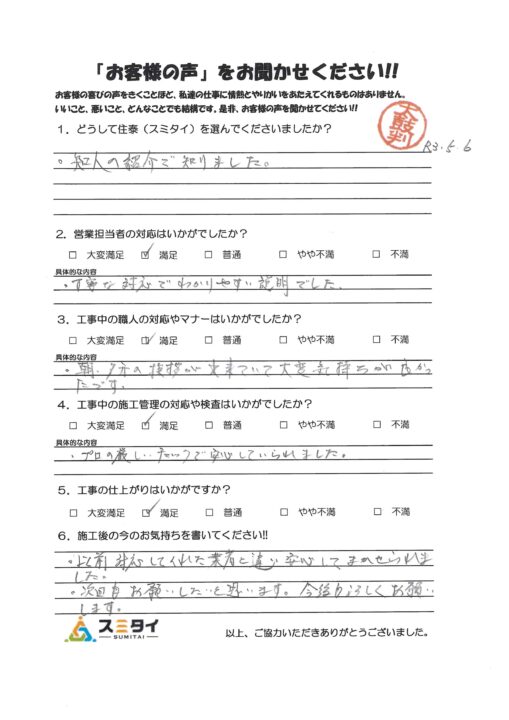 「お客様の声」をお聞かせください!!
お客様の喜びの声をきくことほど、私達の仕事に情熱とやりがいをあたえてくれるものはありません。
いいこと、悪いこと、どんなことでも結構です。是非、お客様の声を聞かせてください!!
太鼓判
R3.5.6
1．どうして住泰（スミタイ）を選んでくださいましたか？
・知人の紹介で知りました。
2．営業担当者の対応はいかがでしたか？
□ 大変満足 ☑ 満足 □ 普通 □ やや不満 □ 不満
具体的な内容
・丁寧な対応でわかりやすい説明でした。
3．工事中の職人の対応やマナーはいかがでしたか？
□ 大変満足 ☑ 満足 □ 普通 □ やや不満 □ 不満
具体的な内容
・朝・夕方の挨拶が出来ていて大変気持ちが良かっ
たです。
4．工事中の施工管理の対応や検査はいかがでしたか？
□ 大変満足 ☑ 満足 □ 普通 □ やや不満 □ 不満
具体的な内容
・プロの厳しいチェックで安心していられました。
5．工事の仕上がりはいかがですか？
□ 大変満足 ☑ 満足 □ 普通 □ やや不満 □ 不満
6．施工後の今のお気持ちを書いてください!!
・以前対応してくれた業者と違い安心して、まかせられま
した。
・次回もお願いしたいと思います。今後もよろしくお願い
します。
スミタイ
SUMITAI
以上、ご協力いただきありがとうございました。